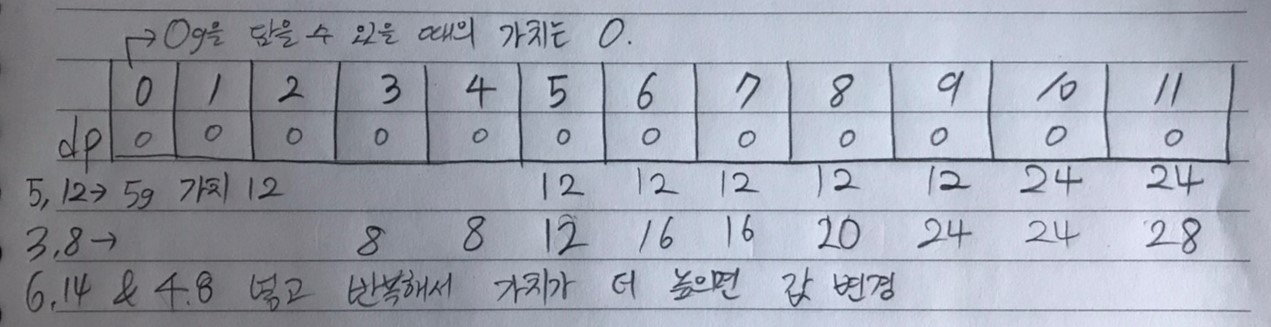 →0g을 담을 수 있을 때의 가치는 0.
0 1 2 3 4 5 6 7 8 9 10 11
dp 0 0 0 0 0 0 0 0 0 0 0 0
5,12→ 5g 가치 12 12 12 12 12 12 24 24
3.8→ 8 8 12 16 16 20 24 24 28
6.14 & 4.8 넣고 반복해서 가치가 더 높으면 값 변경